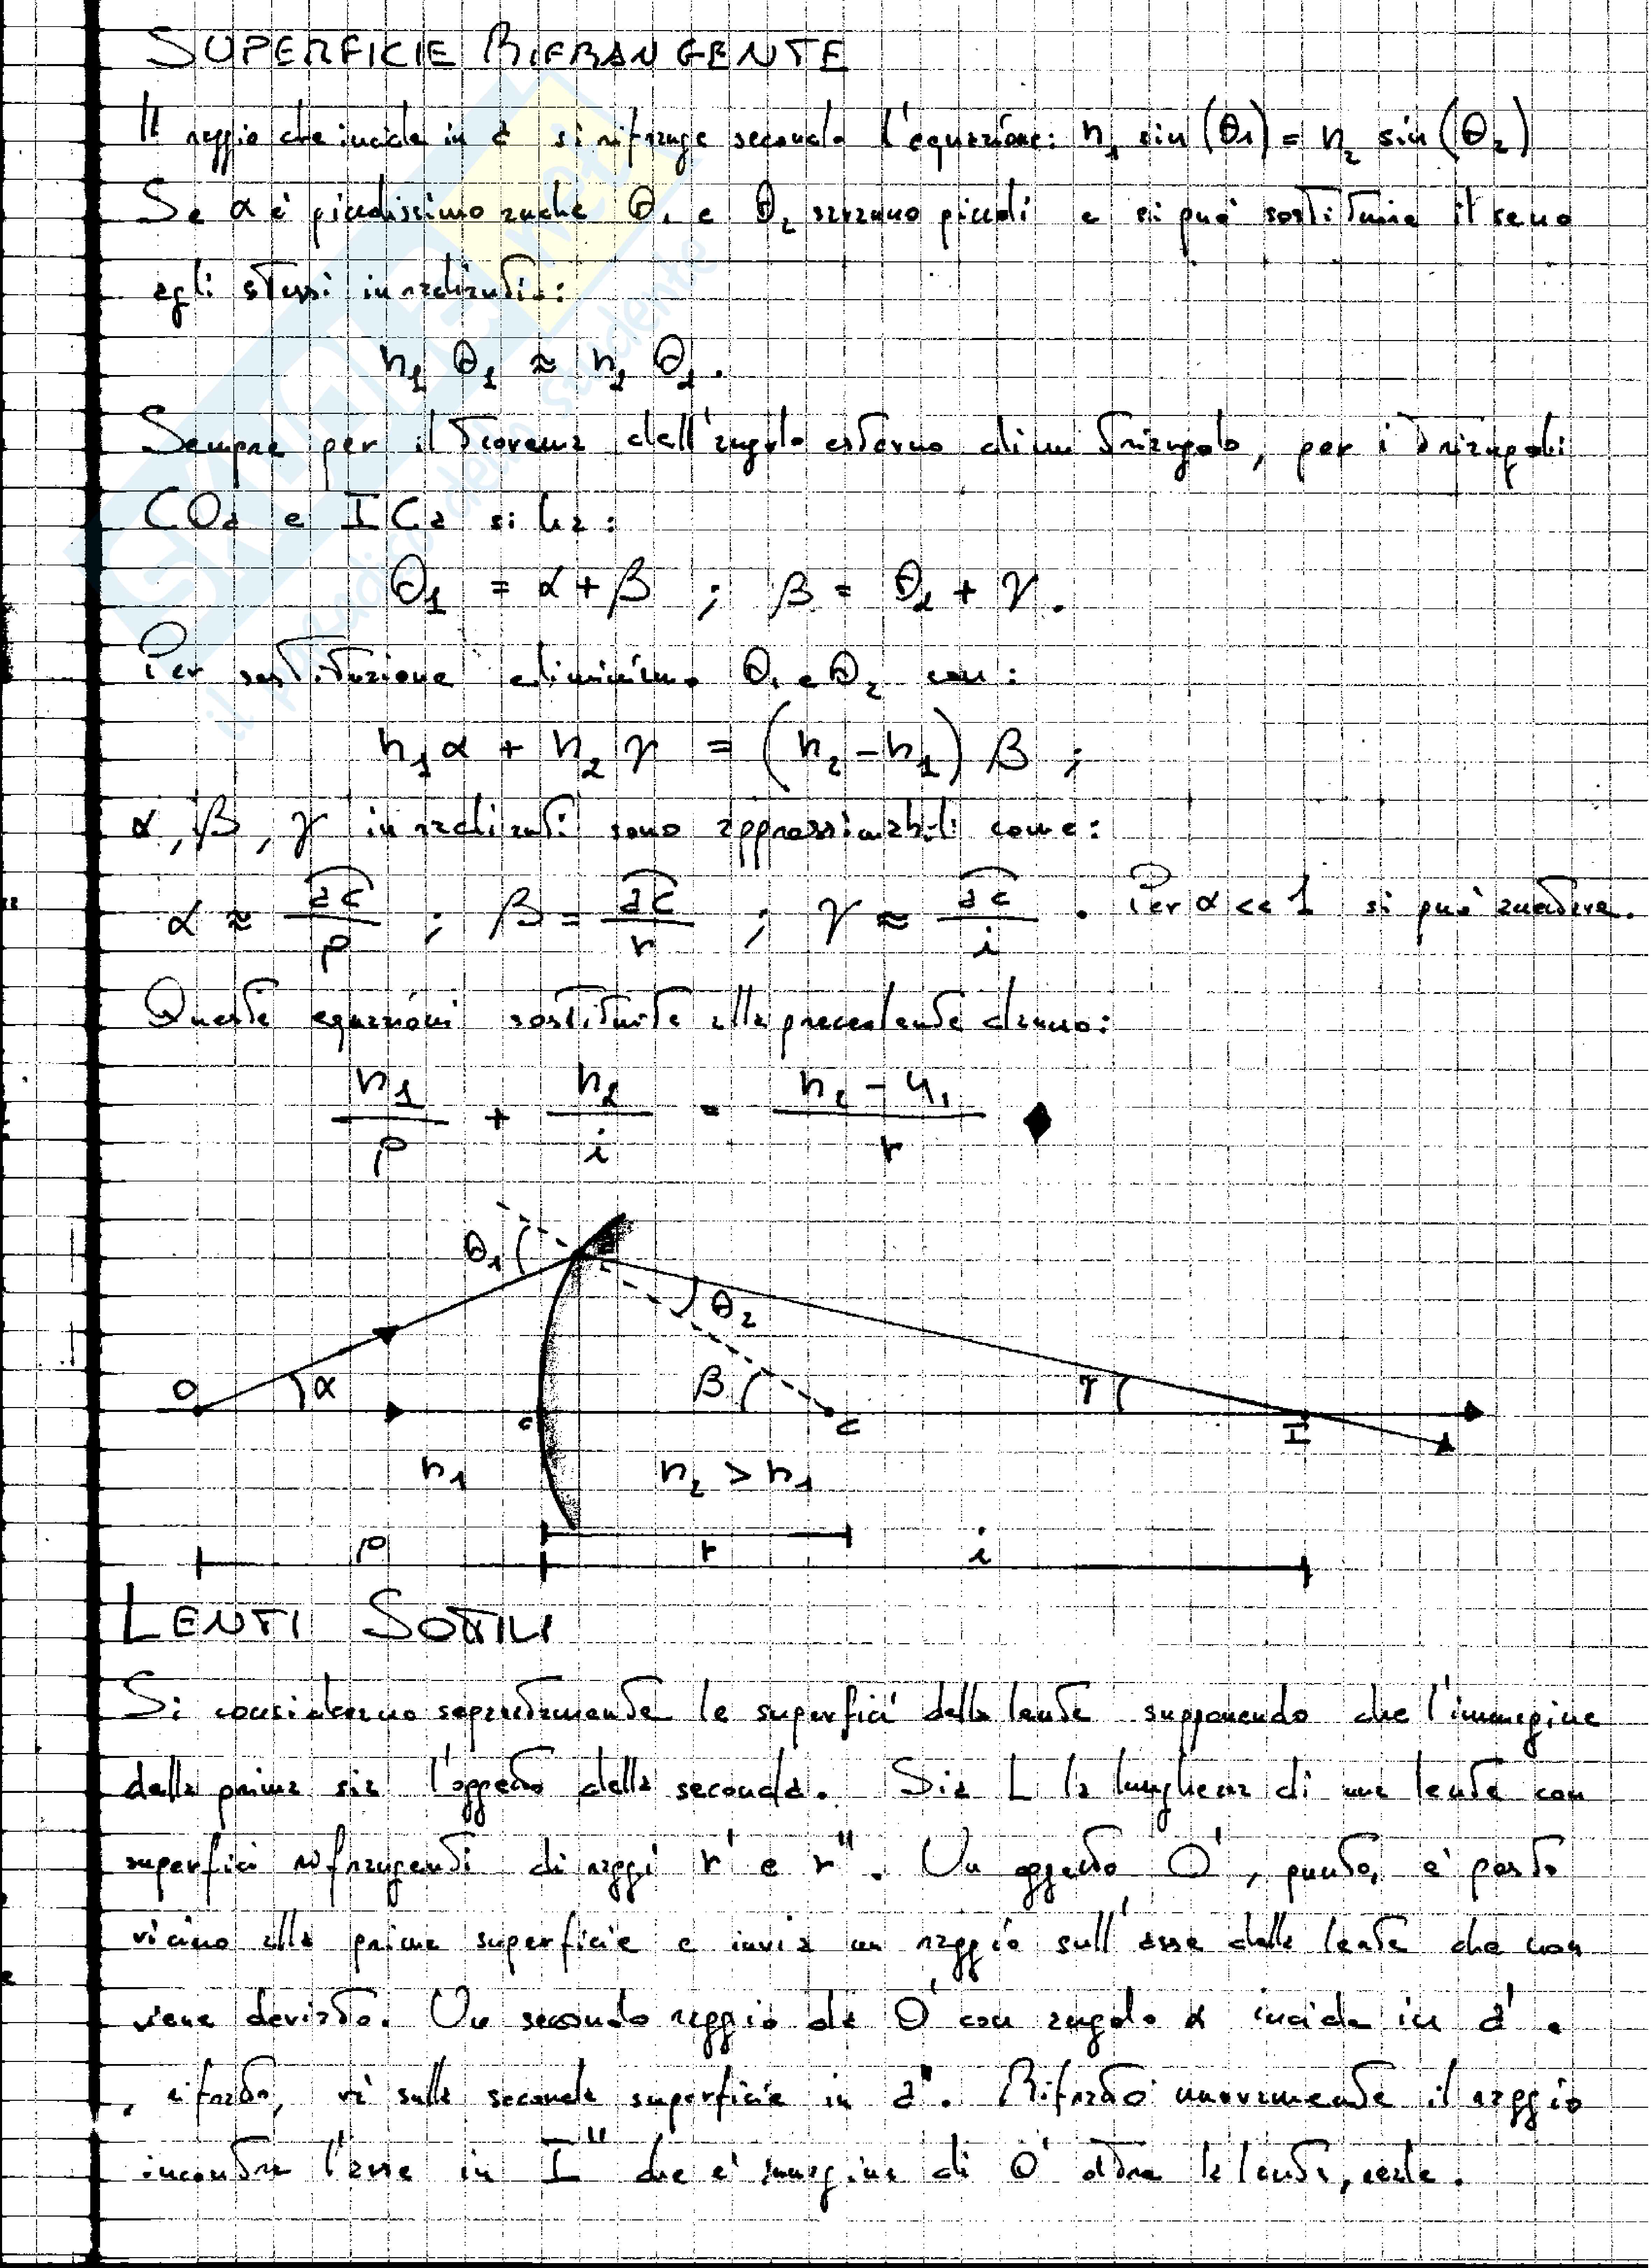 SUPERFICIE RIFRANGENTE
Il raggio che incide in a si rifrange secondo l'equazione: n₁ sin(θ₁) = n₂ sin(θ₂)
Se α è piccolissimo anche θ₁ e θ₂ saranno piccoli e si può sostituire il seno
agli stessi in radianti:
n₁ θ₁ ≈ n₂ θ₂.
Sempre per il teorema dell'angolo esterno di un triangolo, per i triangoli
COa e ICa si ha:
θ₁ = α + β ; β = θ₂ + γ.
Per sostituzione eliminiamo θ₁ e θ₂ con:
n₁ α + n₂ γ = (n₂ - n₁) β ;
α, β, γ in radianti sono approssimabili come:
α ≈ ac/p ; β = ac/r ; γ ≈ ac/i . Per α << 1 si può
Queste equazioni sostituite alla precedente danno:
n₁/p + n₂/i = n₂ - n₁/r
θ₁
θ₂
O α β C γ I
c
n₁ n₂ > n₁
r
p i
LENTI SOTTILI
Si considerano separatamente le superfici della lente supponendo che l'immagine
della prima sia l'oggetto della seconda. Sia L la lunghezza di una lente con
superfici rifrangenti di raggi r' e r''. Un oggetto O', è posto
vicino alla prima superficie e invia un raggio sull'asse della lente che non
viene deviato. Un secondo raggio da O' con angolo α incide in a' e
, rifratto, va sulla seconda superficie in a''. Rifratto nuovamente il raggio
incontra l'asse in I'' che è immagine di O' oltre la lente, reale.